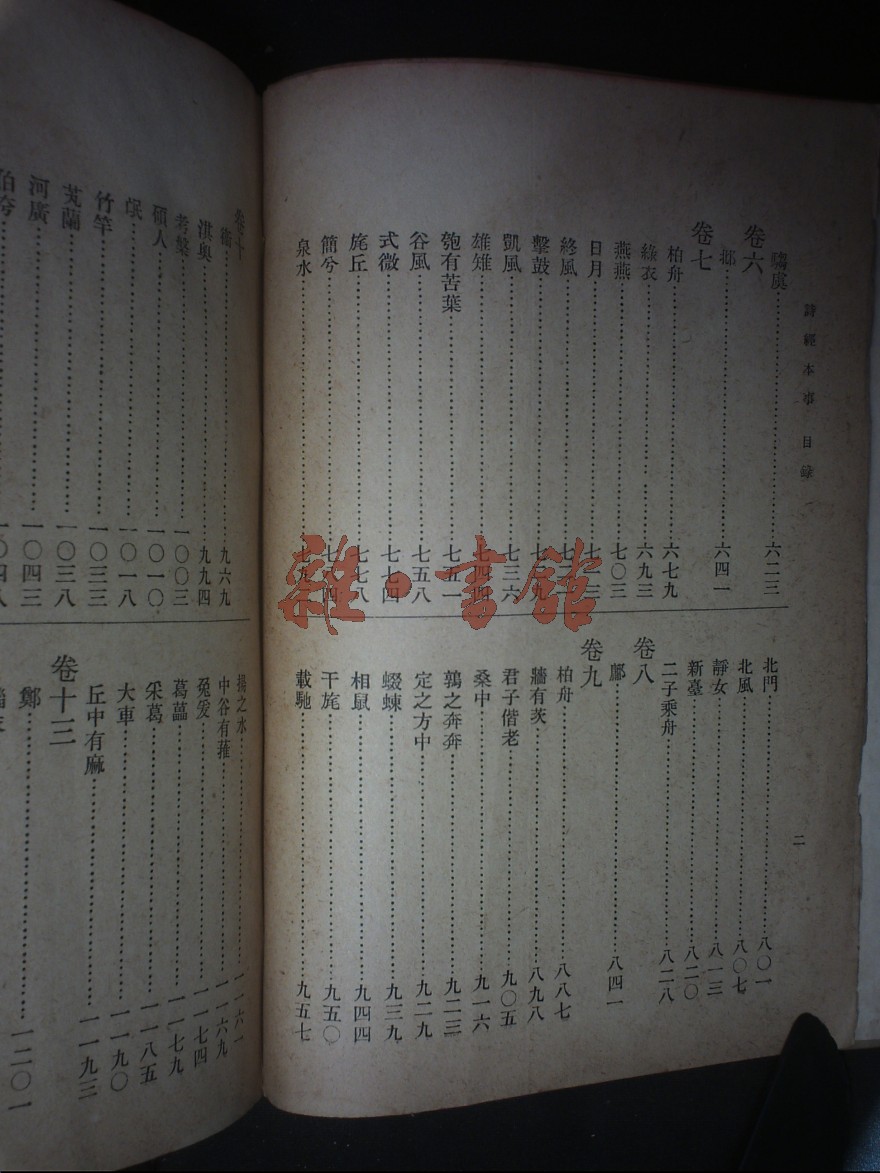 詩經本事 目錄
二
騶虞……六二三
卷六
邶……六四一
卷七
柏舟……六七九
綠衣……六九三
燕燕……七〇三
日月……七
終風……七
擊鼓……七
凱風……七三六
雄雉……七四四
匏有苦葉……七五一
谷風……七五八
式微……七七四
旄丘……七七八
簡兮……七
泉水……七九
北門……八〇一
北風……八〇七
靜女……八一三
新臺……八二〇
二子乘舟……八二八
卷八
鄘……八四一
卷九
柏舟……八八七
牆有茨……八九八
君子偕老……九〇五
桑中……九一六
鶉之奔奔……九二三
定之方中……九二九
蝃蝀……九三九
相鼠……九四四
干旄……九五〇
載馳……九五七
卷十
衛……九六九
淇奥……九九四
考槃……一〇〇三
碩人……一〇一〇
氓……一〇一八
竹竿……一〇三三
芄蘭……一〇三八
河廣……一〇四三
伯兮……一〇四八
揚之水……一一六一
中谷有蓷……一一六九
兔爰……一一七四
葛藟……一一七九
采葛……一一八五
大車……一一九〇
丘中有麻……一一九三
卷十三
鄭……一二〇一
雜·書館